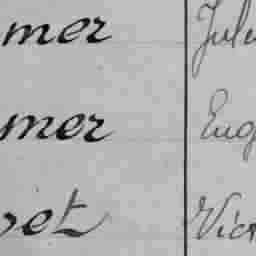 mer Jule
mer Eug
et Vict